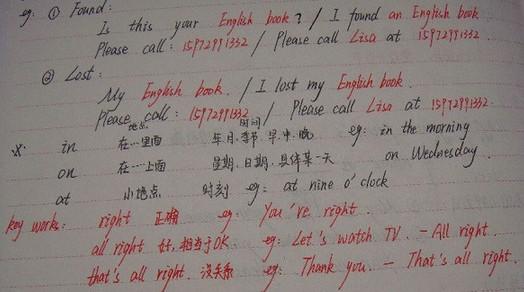 eg: ① Found:
Is this your English book? / I found an English book
Please call: 15972991332 / Please call Lisa at 15972991332.
② Lost:
My English book. / I lost my English book.
Please call: 15972991332 / Please call Lisa at 15972991332.
地点 时间
※: in 在…里面 年.月.季节.早.中.晚 eg: in the morning
on 在…上面 星期.日期.具体某一天 on Wednesday.
at 小地点 时刻 eg: at nine o'clock
key works: right 正确 eg: You're right.
all right 好,相当于OK eg: Let's watch TV. - All right.
that's all right. 没关系 eg: Thank you. - That's all right.